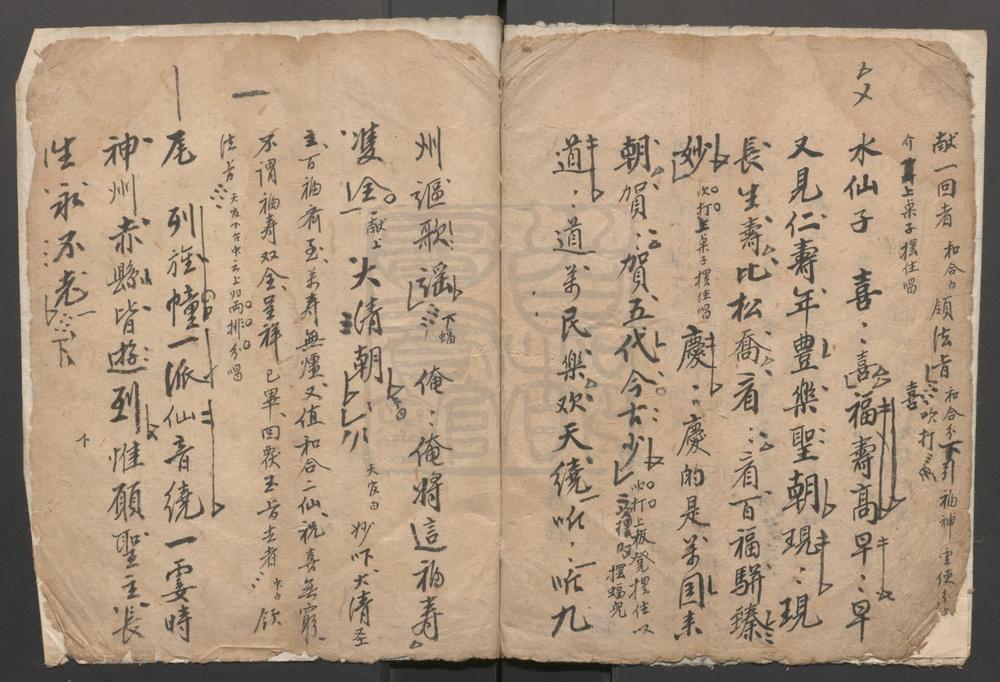 献一回者 和合白 領法旨 和合分下引福神雲使分
介上桌子擺住唱 喜 吹打
水仙子 喜：喜福壽高早：早
又見仁壽年豊樂聖朝現：現
長生壽比松喬看：看百福駢臻
妙 吹打上桌子擺住唱 慶：慶的是萬国来
朝賀：賀五代今古少 吹打上板凳擺住以 擺蝠兒
道：道萬民樂欢天繞 九
州謳歌謡 下蝠 俺：俺將這福壽
双全 献上 大清朝 天官白 妙吓大清圣
主百福齐至萬寿無疆又值和合二仙祝喜無窮
不謂福寿双全呈祥已畢回覆玉旨去者 衆白 領
法旨 天官下台中云上归兩排分唱
尾 列旌幢一派仙音繞一霎時
神州赤縣皆遊到惟願聖主長
生永不老 下
下